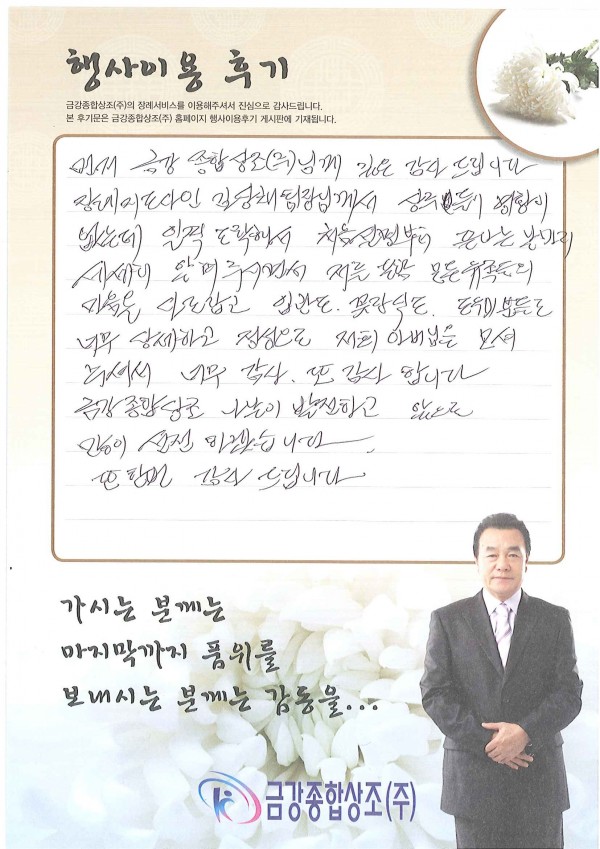 행사이용 후기
금강종합상조(주)의 장례서비스를 이용해주셔서 진심으로 감사드립니다.
본 후기문은 금강종합상조(주) 홈페이지 행사이용후기 게시판에 기재됩니다.
먼저 금강 종합상조(주)님께 깊은 감사 드립니다
장례지도사인 팀장님께서 경황이
없는데 일찍 도착해서 처음 선정부터 끝나는 날까지
세세히 알려주시면서 저를 모든 유족들의
마음을 입관도. 꽃장식도. 도우미분들도
너무 상세하고 정성으로 저희 아버님을 모셔
주셔서 너무 감사. 또 감사 합니다
금강종합상조 나날이 발전하고 앞으로
많이 선전 하겠습니다.
또 한번 감사 드립니다
가시는 분께는
마지막까지 품위를
보내시는 분께는 감동을...
금강종합상조(주)